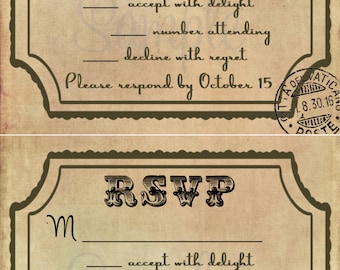 ___ accept with delight
___ number attending
___ decline with regret
Please respond by October 15
CITTA DEL VATICANO
1. 8.30.16
POSTE
RSVP
M
___ accept with delight